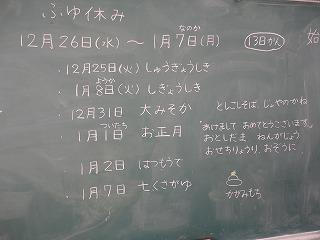 ふゆ休み
12月26日(水)～1月7日(月) 13日かん 始
なのか
・12月25日(火) しゅうぎょうしき
・1月8日(火) しぎょうしき
ようか
・12月31日 大みそか としこしそば、じょやのかね
・1月1日 お正月 あけまして おめでとうございます。
ついたち
おとしだま ねんがじょう
おせちりょうり、おぞうに
・1月2日 はつもうで
・1月7日 七くさがゆ
かがみもち